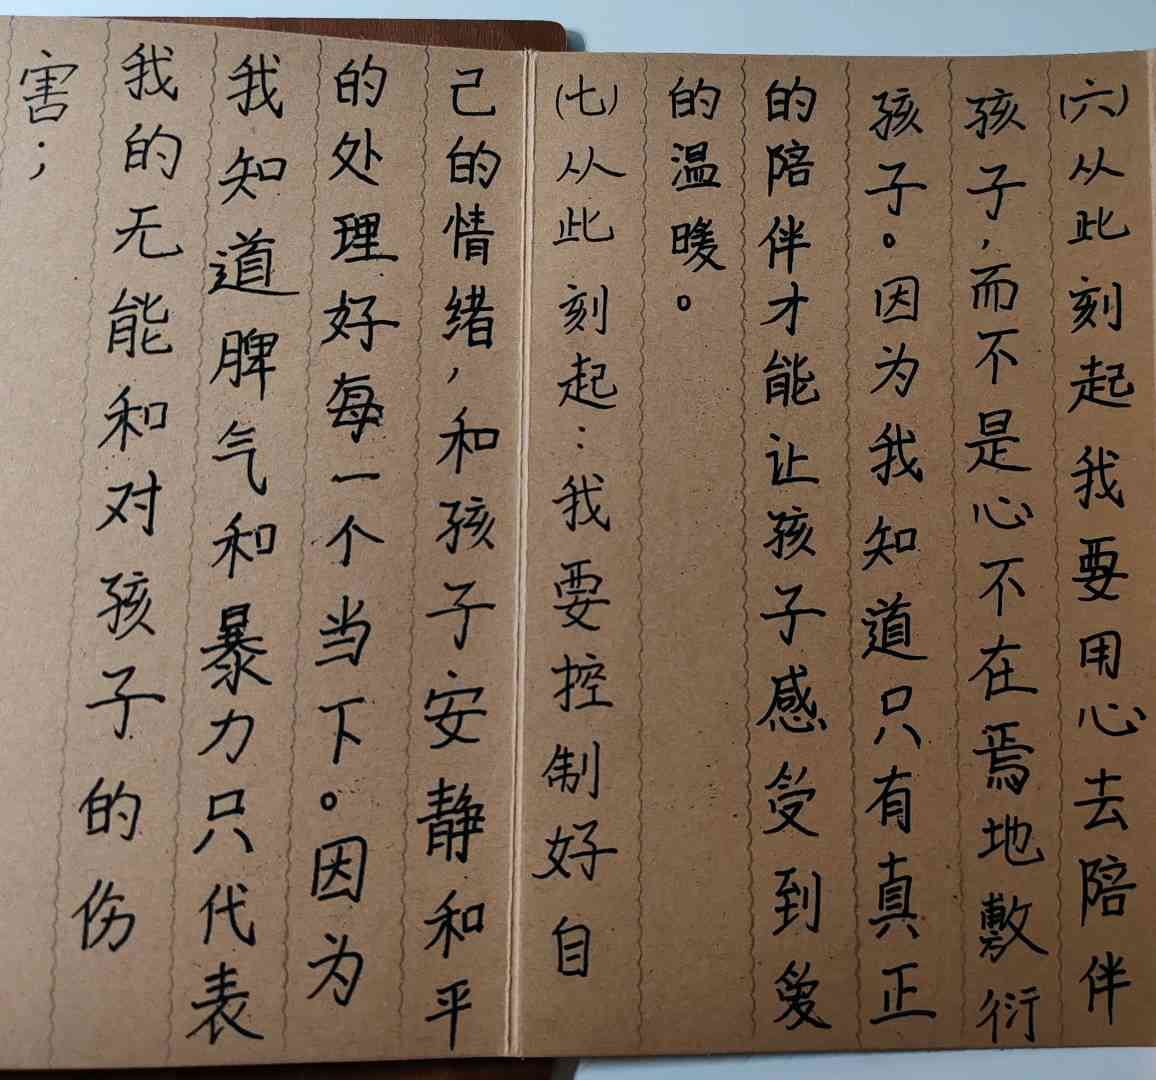 (六)从此刻起我要用心去陪伴
孩子,而不是心不在焉地敷衍
孩子。因为我知道只有真正
的陪伴才能让孩子感受到爱
的温暖。
(七)从此刻起:我要控制好自
己的情绪,和孩子安静和平
的处理好每一个当下。因为
我知道脾气和暴力只代表
我的无能和对孩子的伤
害;